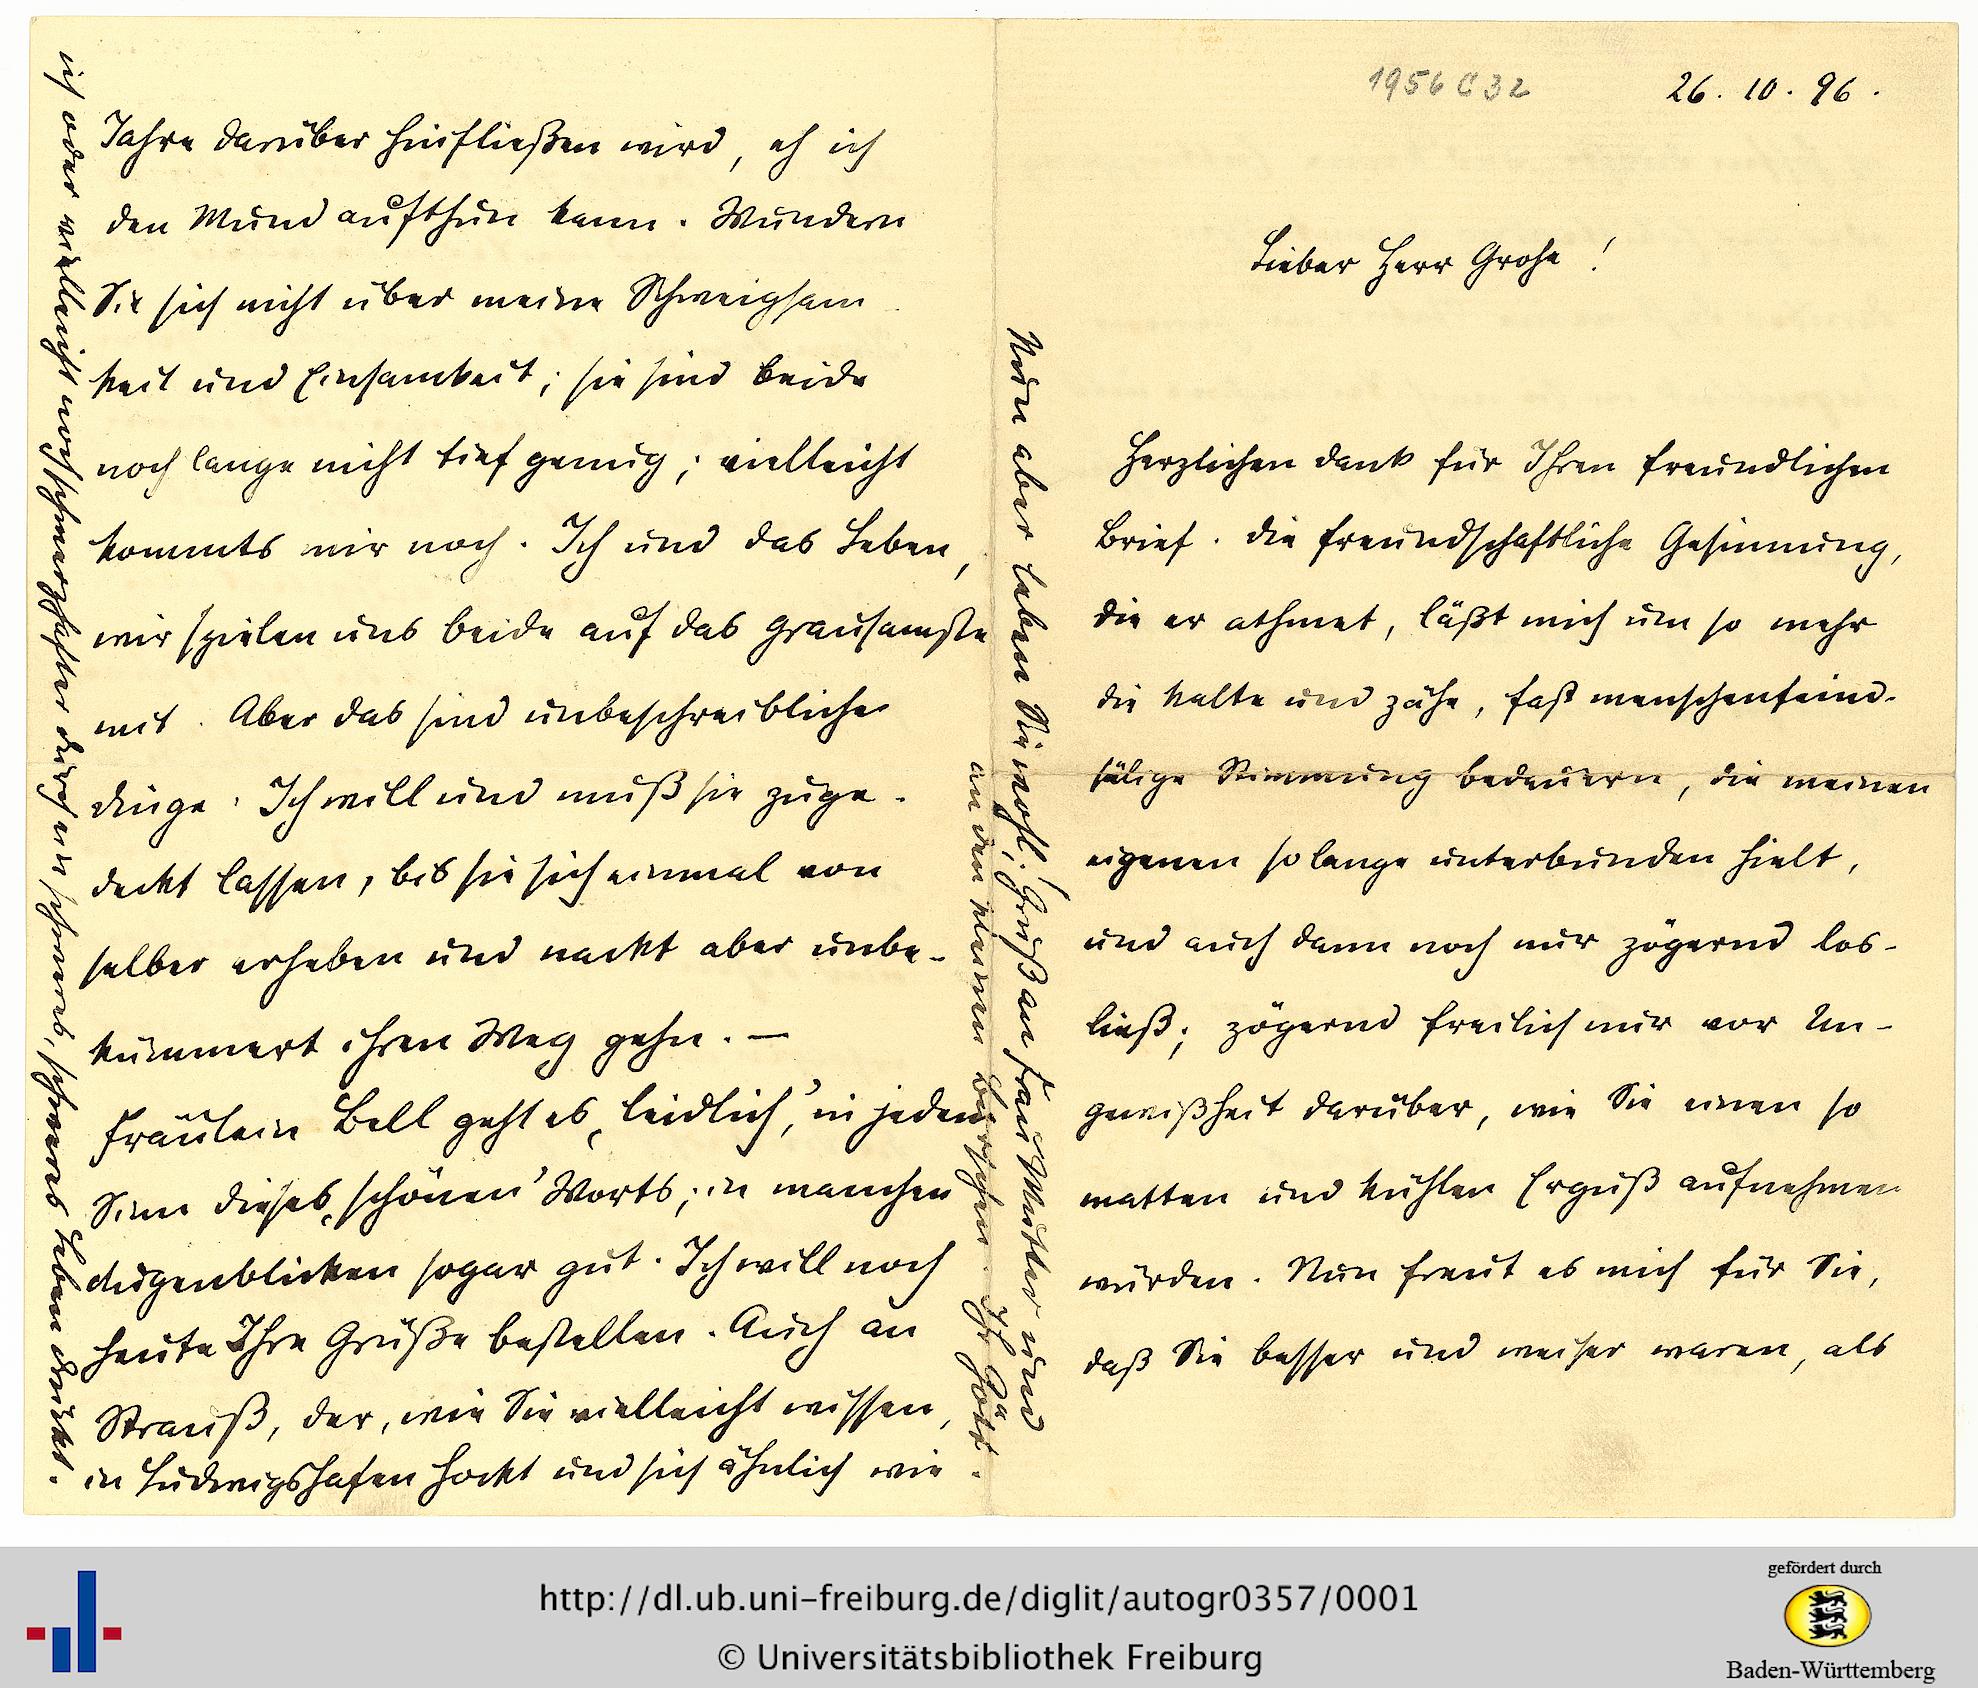 1956 C 32
26. 10. 96.
Lieber Herr Grohe!
Herzlichen Dank für Ihren freundlichen
Brief. Die freundschaftliche Gesinnung,
die er athmet, läßt mich um so mehr
die kalte und zähe, fast menschenfeind-
sälige Stimmung bedauern, die meinen
eigenen so lange unterbunden hielt,
und auch dann noch nur zögernd los-
ließ; zögernd freilich nur vor Un-
gewißheit darüber, wie Sie einen so
matten und kühlen Erguß aufnehmen
würden. Nun freut es mich für Sie,
daß Sie besser und weiser waren, als
Jahre darüber hinfließen wird, eh ich
den Mund aufthun kann. Wundern
Sie sich nicht über meine Schweigsam
keit und Einsamkeit; sie sind beide
noch lange nicht tief genug; vielleicht
kommts mir noch. Ich und das Leben,
wir spielen uns beide auf das grausamste
mit. Aber das sind unbeschreibliche
Dinge. Ich will und muß sie zuge-
deckt lassen, bis sie sich einmal von
selber erheben und nackt aber unbe-
kümmert ihren Weg gehn. —
Fräulein Bell geht es „leidlich“, in jedem
Sinn dieses „schönen“ Worts; in manchen
Augenblicken sogar gut. Ich will noch
heute Ihre Grüße bestellen. Auch an
Strauß, der, wie Sie vielleicht wissen,
in Ludwigshafen hockt und sich ähnlich wie
ich oder vielleicht noch schmerzhafter durch ein schweres, schweres Leben drückt.
Nun aber leben Sie wohl! Gruß an Frau Mutter und
an den kleinen Burschen. Ihr Gött.
http://dl.ub.uni-freiburg.de/diglit/autogr0357/0001
© Universitätsbibliothek Freiburg
gefördert durch
Baden-Württemberg